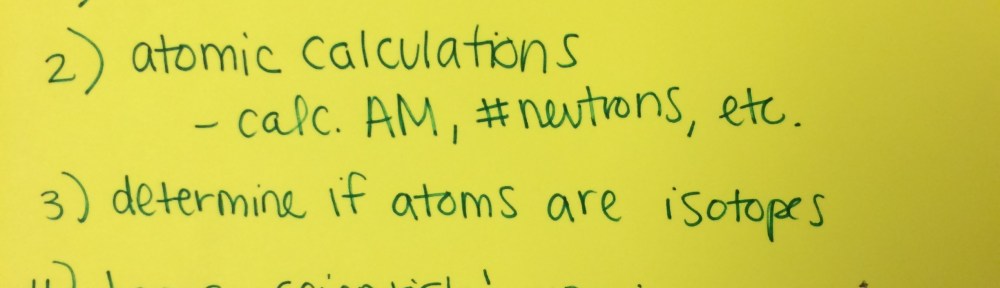 2) atomic calculations
- calc. AM, #neutrons, etc.
3) determine if atoms are isotopes